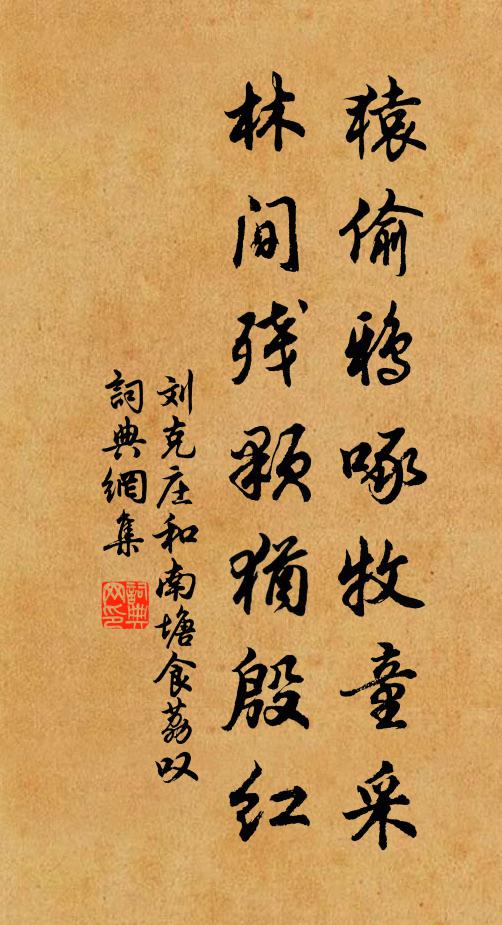 猿偷鸦啄牧童采
林间残颗犹殷红
刘克庄和南塘食荔叹
詞典網集
詞典
网印